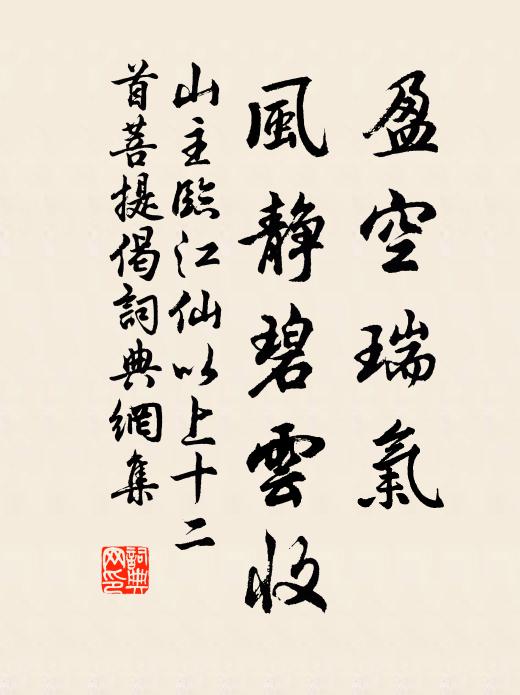 盈空瑞氣
風靜碧雲收
山主臨江仙以上十二
首菩提偈詞典網集
詞典网印